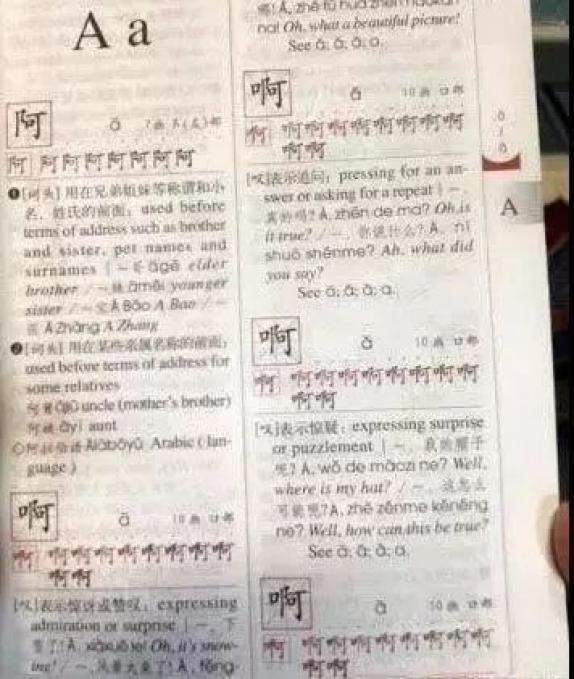 A a
阿 ā 7画
阿 阿阿阿阿阿阿阿
❶[词头]用在兄弟姐妹等称谓和小
名、姓氏的前面; used before
terms of address such as brother
and sister, pet names and
surnames | ~哥 āgē elder
brother / ~妹 āmèi younger
sister / ~宝 Ā Bǎo A Bao / ~
张 Ā Zhāng A Zhang
❷[词头]用在某些亲属名称的前面;
used before terms of address for
some relatives
阿舅 ājiù uncle (mother's brother)
阿姨 āyí aunt
◇阿拉伯语 Ālābóyǔ Arabic (lan-
guage)
啊 ā 10画 口部
啊 啊啊啊啊啊啊啊啊
啊啊
[叹]表示惊讶或赞叹; expressing
admiration or surprise | ~, 下
雪了! Ā, xiàxuě le! Oh, it's snow-
ing! / ~, 风景太美了! Ā, fēng-
nа! Oh, what a beautiful picture!
See á; ǎ; à; a.
啊 á 10画 口部
啊 啊啊啊啊啊啊啊啊
啊啊
[叹]表示追问; pressing for an an-
swer or asking for a repeat | ~,
真的吗? Á, zhēn de ma? Oh, is
it true? / ~, 你说什么? Á, nǐ
shuō shénme? Ah, what did
you say?
See ā; ǎ; à; a.
啊 ǎ 10画 口部
啊 啊啊啊啊啊啊啊啊
啊啊
[叹]表示惊疑; expressing surprise
or puzzlement | ~, 我的帽子
呢? Ǎ, wǒ de màozi ne? Well,
where is my hat? / ~, 这怎么
可能呢? Ǎ, zhè zěnme kěnéng
ne? Well, how can this be true?
See ā; á; à; a.
啊 à 10画 口部
啊 啊啊啊啊啊啊啊啊
啊啊
A